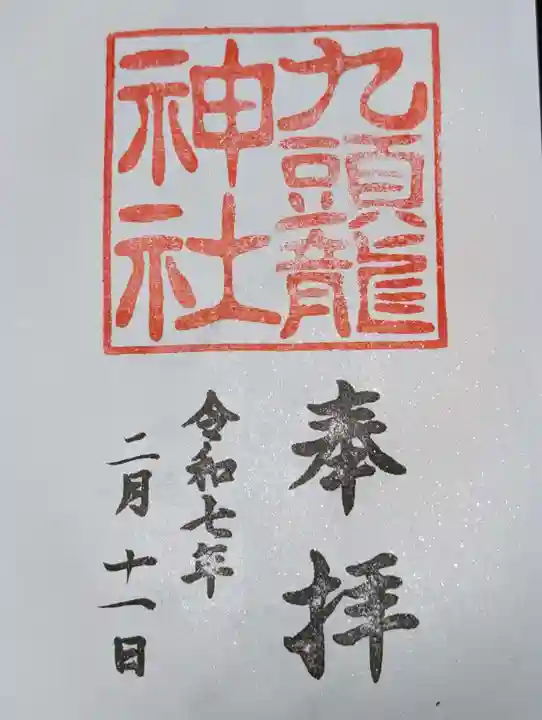 九頭龍
神社
奉拝
令和七年
二月十一日